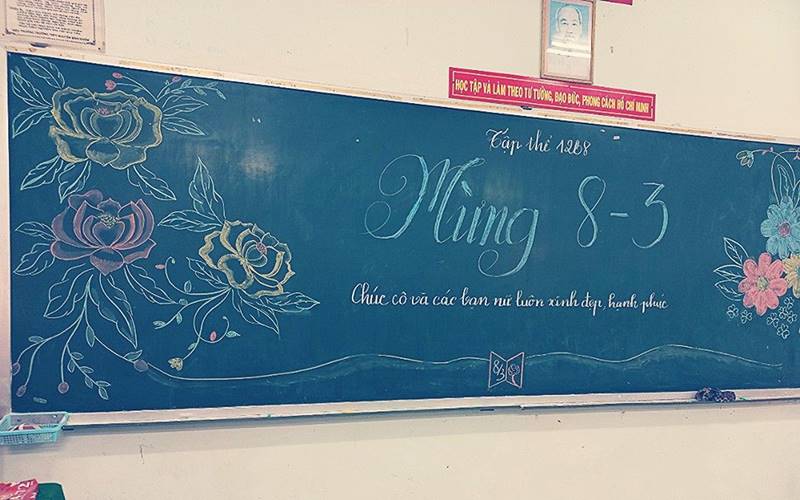 HỌC TẬP VÀ LÀM THEO TƯ TƯỞNG, ĐẠO ĐỨC, PHONG CÁCH HỒ CHÍ MINH
Tập thể 12B8
Mừng 8-3
Chúc cô và các bạn nữ luôn xinh đẹp, hạnh phúc
8/3